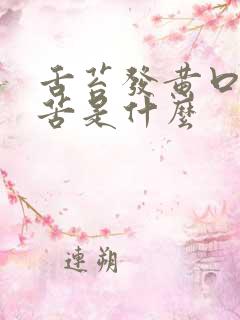 舌苔發黃口
苦是什麼
連朔